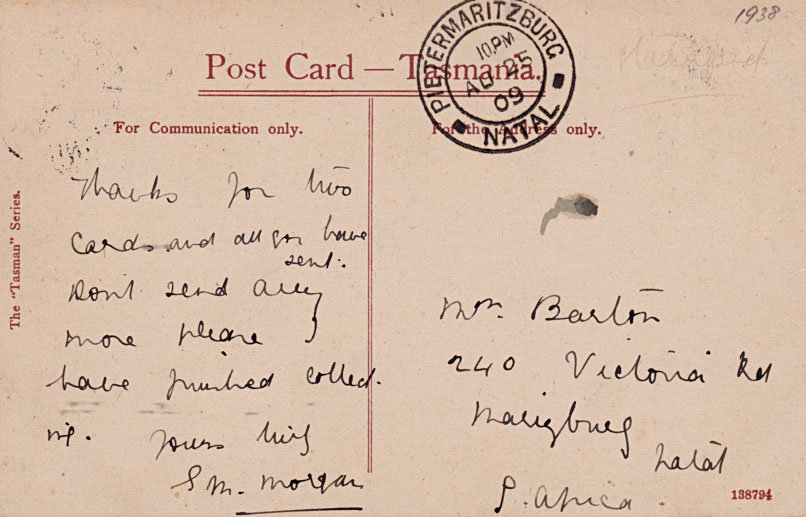 1938
PIETERMARITZBURG
10.PM
AU 25
09
NATAL
Post Card — Tasmania.
For Communication only.
For the Address only.
The "Tasman" Series.
Thanks for two
cards and all you have
sent.
Don't send any
more please I
have finished collect-
ing. Yours truly
S M. Morgan
Mr. Barton
240 Victoria Rd
Maritzburg
Natal
S. Africa.
138794